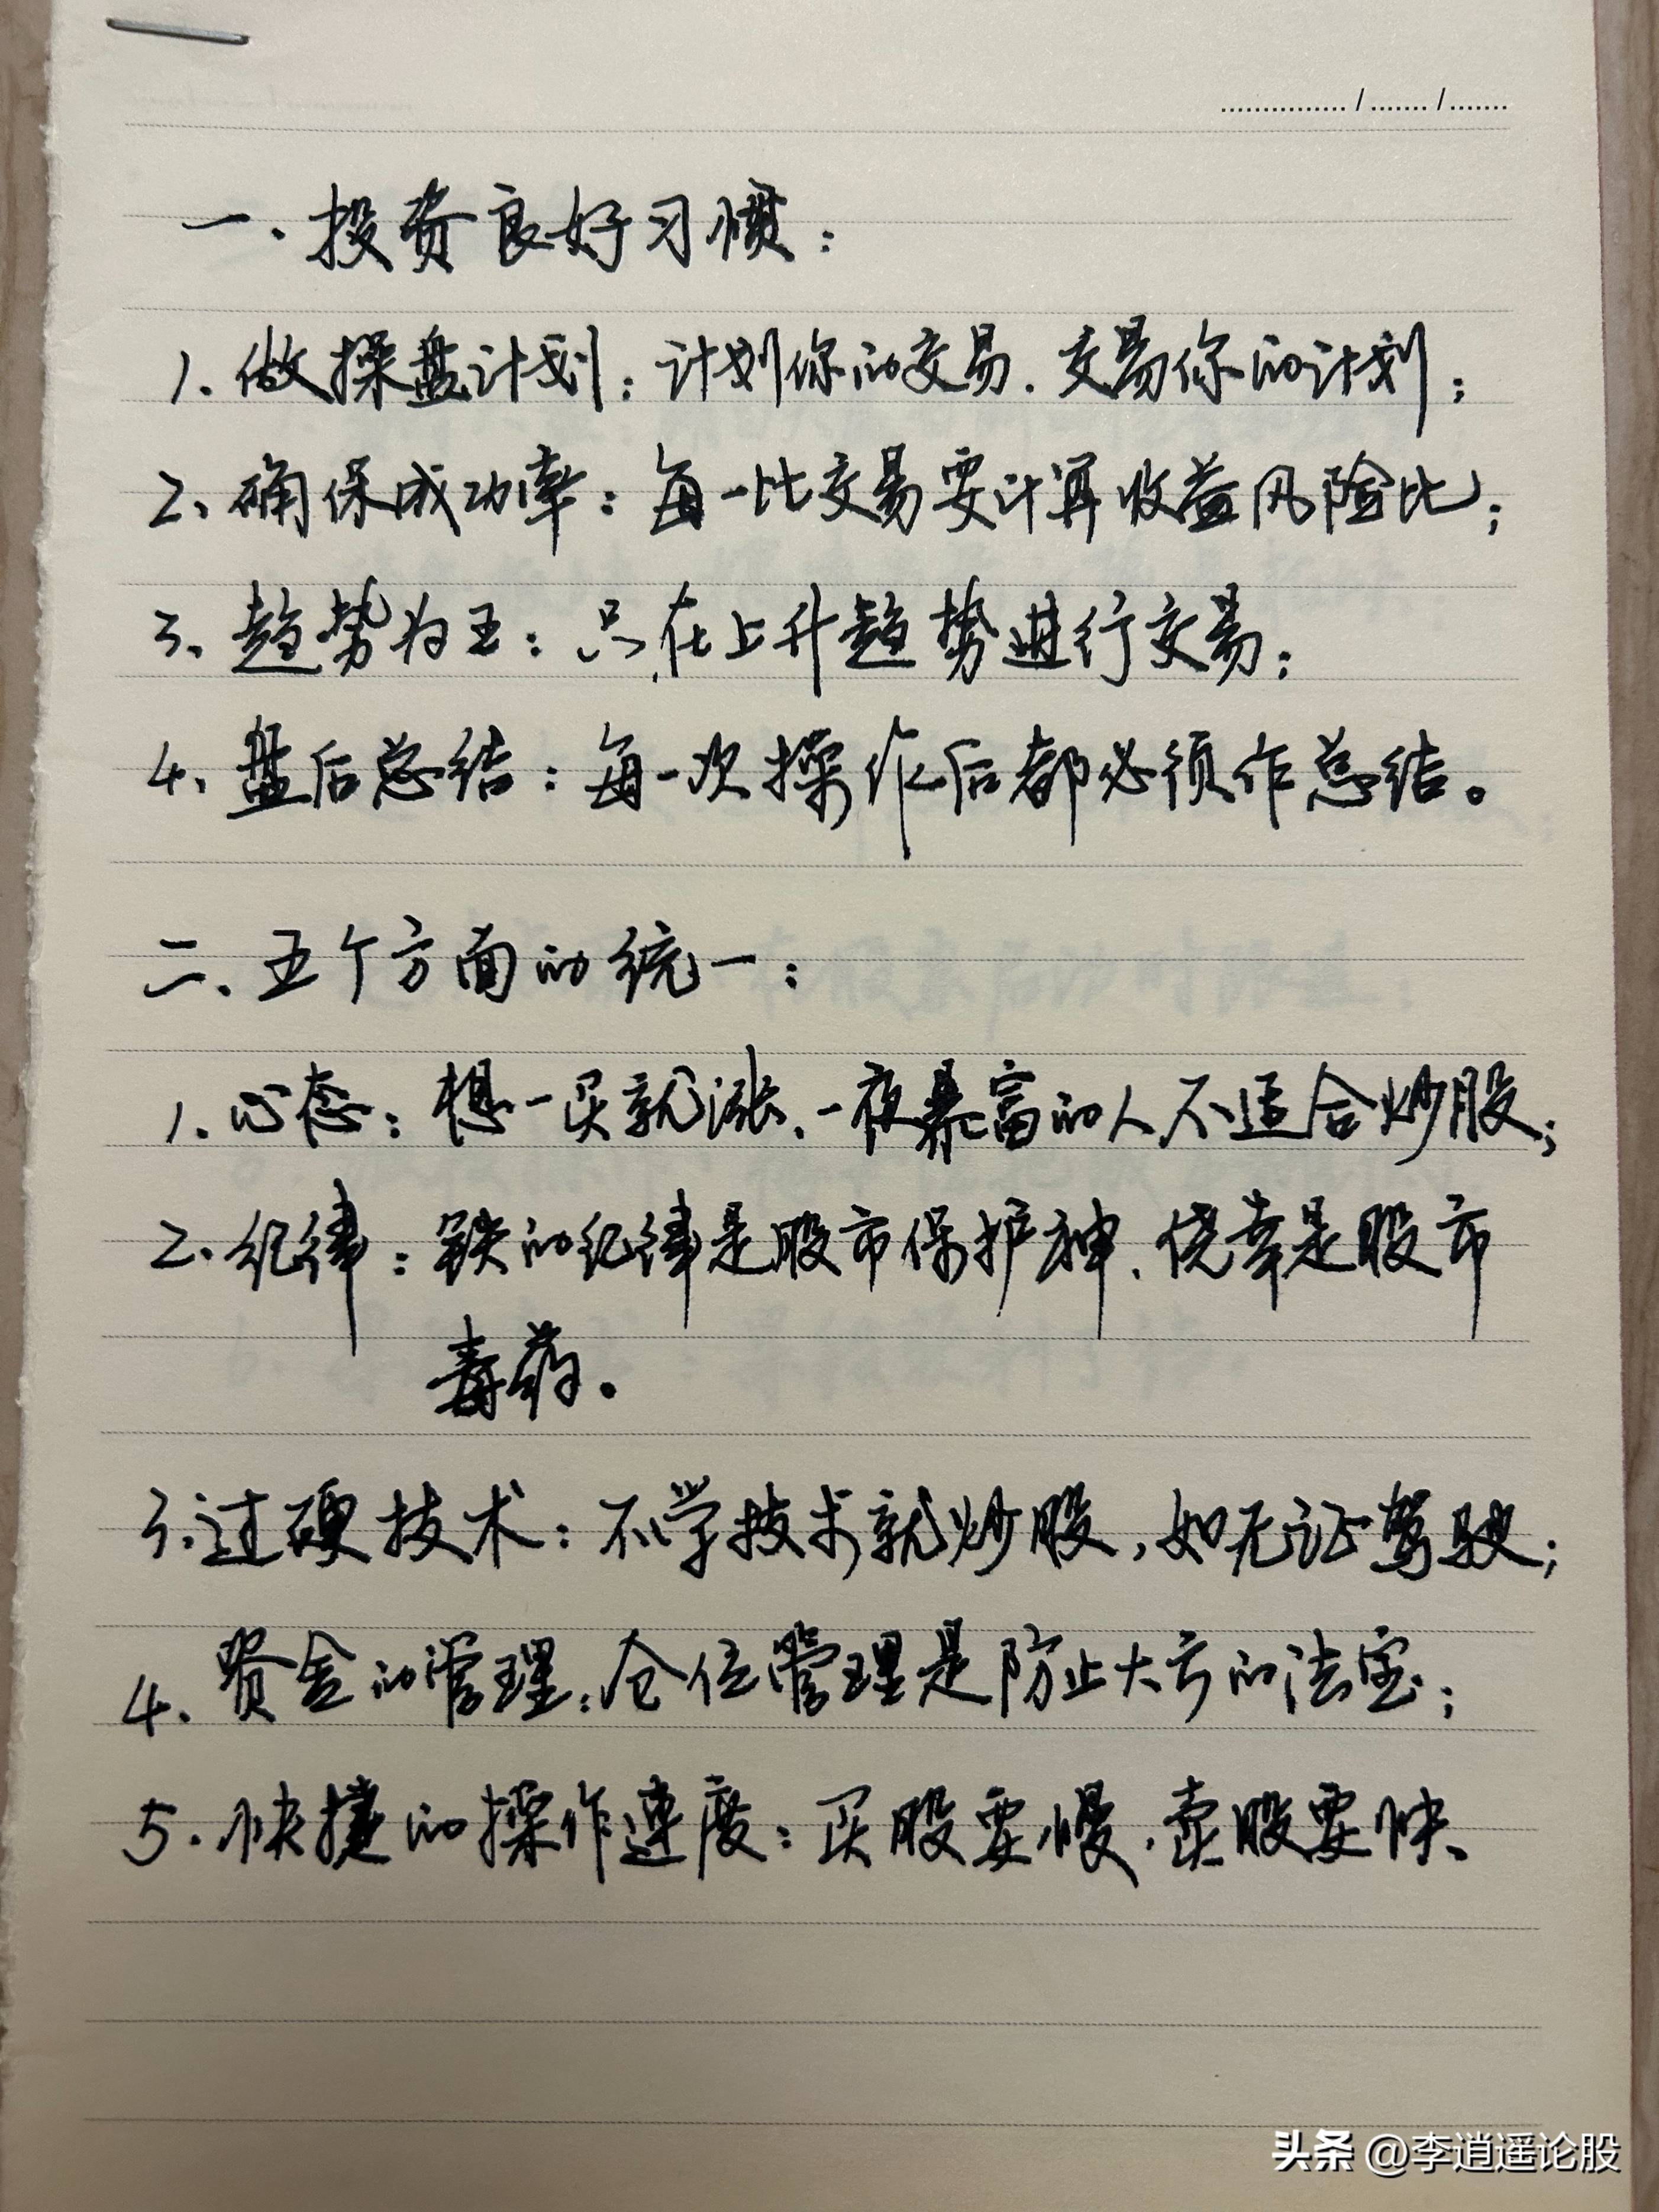 ............... / ....... / .......
一、投资良好习惯：
1、做操盘计划：计划你的交易、交易你的计划；
2、确保成功率：每一比交易要计算收益风险比；
3、趋势为王：只在上升趋势进行交易；
4、盘后总结：每一次操作后都必须作总结。
二、五个方面的统一：
1、心态：想一买就涨、一夜暴富的人不适合炒股；
2、纪律：铁的纪律是股市保护神、侥幸是股市
毒药。
3、过硬技术：不学技术就炒股，如无证驾驶；
4、资金的管理：仓位管理是防止大亏的法宝；
5、快捷的操作速度：买股要慢、卖股要快、
头条 @李逍遥论股